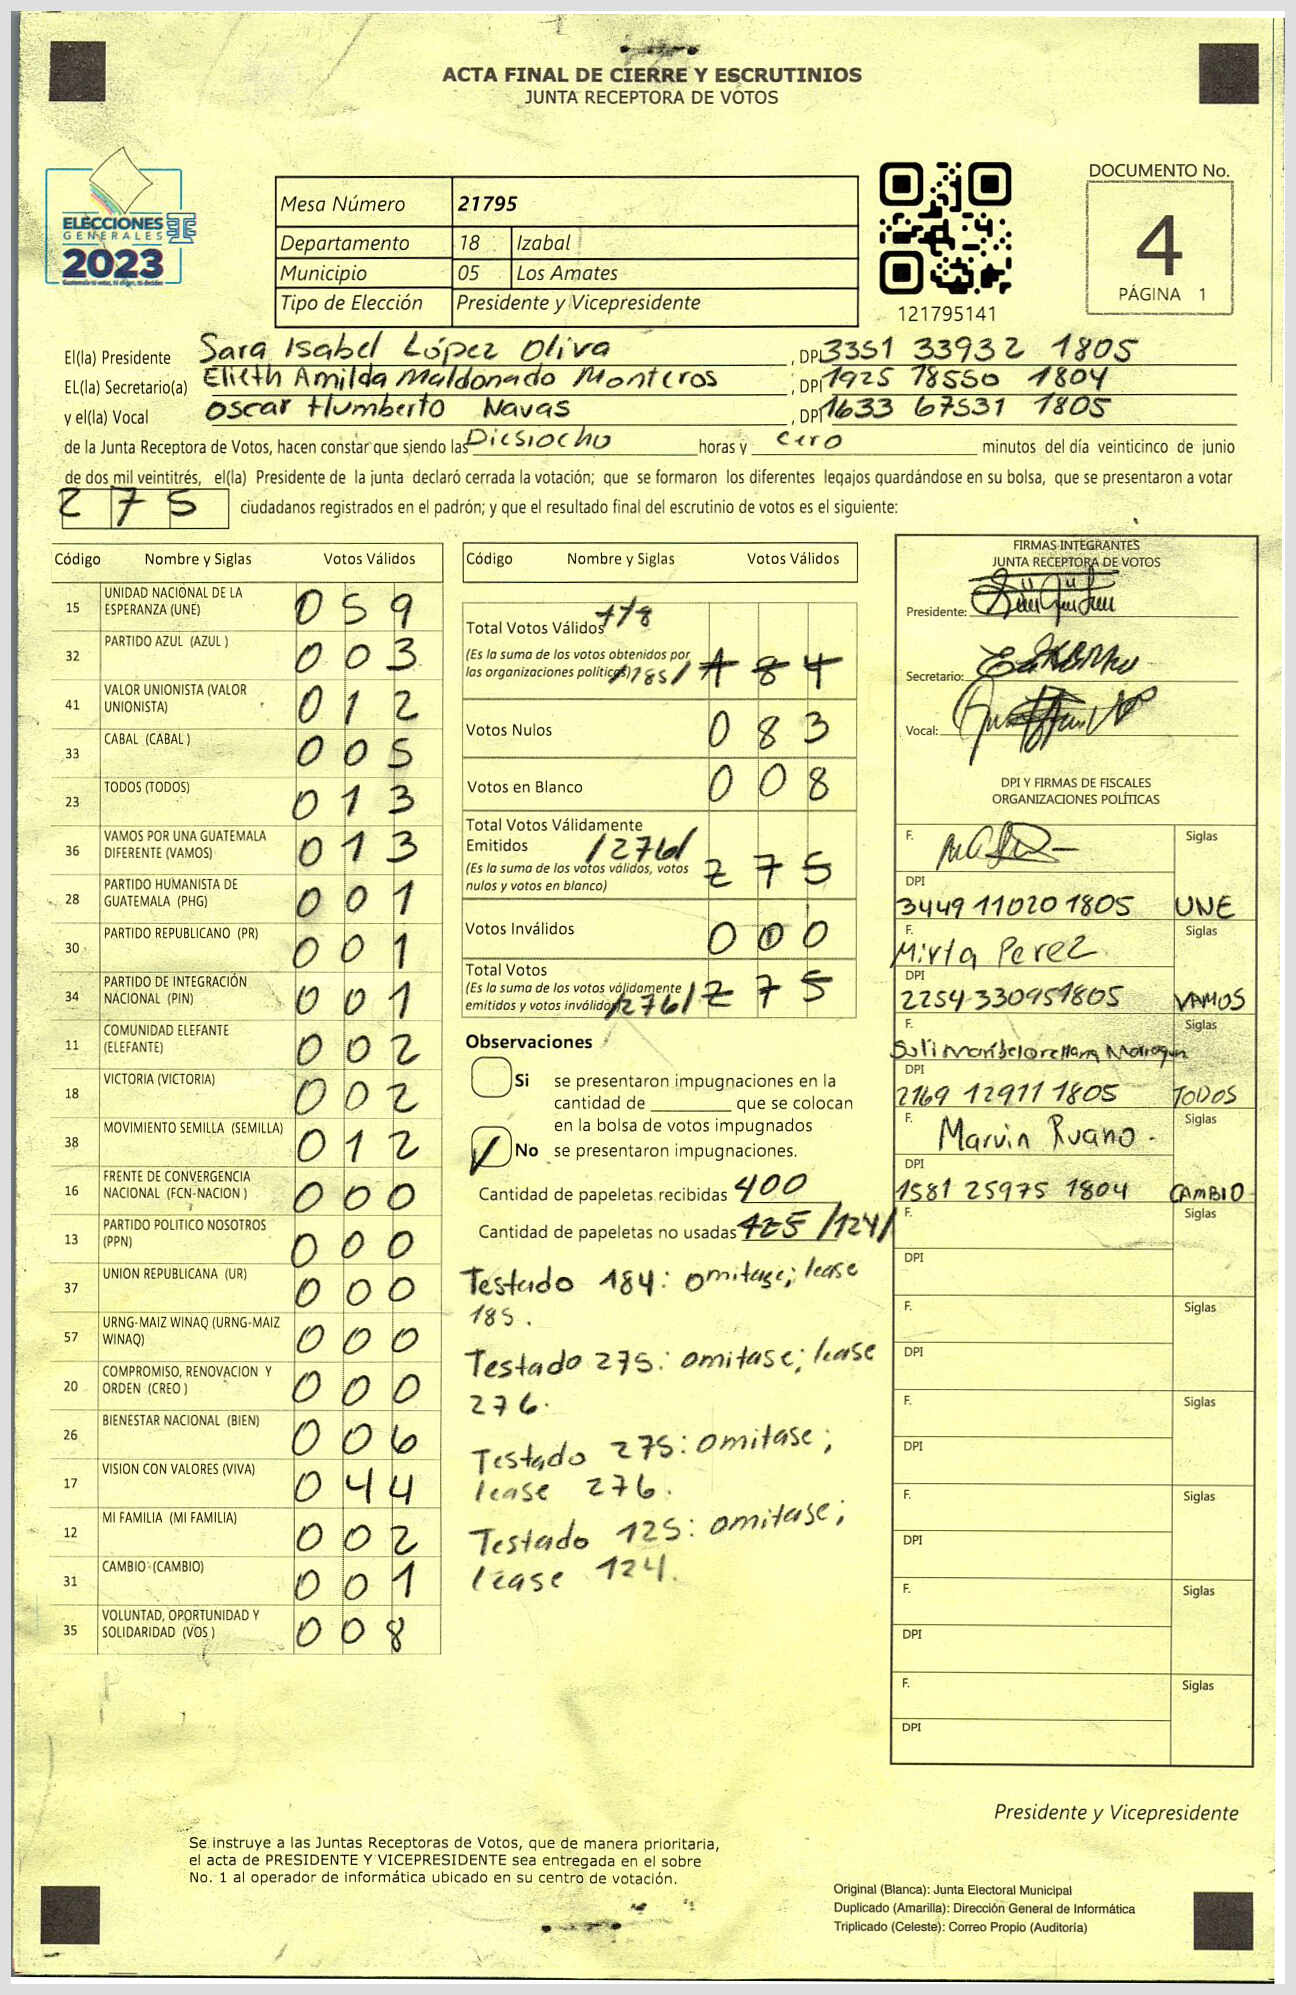 ACTA FINAL DE CIERRE Y ESCRUTINIOS
JUNTA RECEPTORA DE VOTOS
ELECCIONES
GENERALES
2023
Mesa Número 21795
Departamento 18 Izabal
Municipio 05 Los Amates
Tipo de Elección Presidente y Vicepresidente
121795141
DOCUMENTO No.
4
PÁGINA 1
El(la) Presidente Sara Isabel López Oliva, DPI 3351 33932 1805
EL(la) Secretario(a) Elieth Amilda Maldonado Monteros, DPI 1925 78550 1804
y el(la) Vocal Oscar Humberto Navas, DPI 1633 67531 1805
de la Junta Receptora de Votos, hacen constar que siendo las Diesiocho horas y cero minutos del día veinticinco de junio
de dos mil veintitrés, el(la) Presidente de la junta declaró cerrada la votación; que se formaron los diferentes legajos guardándose en su bolsa, que se presentaron a votar
275 ciudadanos registrados en el padrón; y que el resultado final del escrutinio de votos es el siguiente:
Código Nombre y Siglas Votos Válidos
15 UNIDAD NACIONAL DE LA ESPERANZA (UNE) 059
32 PARTIDO AZUL (AZUL ) 003
41 VALOR UNIONISTA (VALOR UNIONISTA) 012
33 CABAL (CABAL ) 005
23 TODOS (TODOS) 013
36 VAMOS POR UNA GUATEMALA DIFERENTE (VAMOS) 013
28 PARTIDO HUMANISTA DE GUATEMALA (PHG) 001
30 PARTIDO REPUBLICANO (PR) 001
34 PARTIDO DE INTEGRACIÓN NACIONAL (PIN) 001
11 COMUNIDAD ELEFANTE (ELEFANTE) 002
18 VICTORIA (VICTORIA) 002
38 MOVIMIENTO SEMILLA (SEMILLA) 012
16 FRENTE DE CONVERGENCIA NACIONAL (FCN-NACION ) 000
13 PARTIDO POLITICO NOSOTROS (PPN) 000
37 UNION REPUBLICANA (UR) 000
57 URNG-MAIZ WINAQ (URNG-MAIZ WINAQ) 000
20 COMPROMISO, RENOVACION Y ORDEN (CREO ) 000
26 BIENESTAR NACIONAL (BIEN) 006
17 VISION CON VALORES (VIVA) 044
12 MI FAMILIA (MI FAMILIA) 002
31 CAMBIO (CAMBIO) 001
35 VOLUNTAD, OPORTUNIDAD Y SOLIDARIDAD (VOS ) 008
Código Nombre y Siglas Votos Válidos
Total Votos Válidos
(Es la suma de los votos obtenidos por
las organizaciones políticas) /185/ 184
Votos Nulos 083
Votos en Blanco 008
Total Votos Válidamente
Emitidos /276/
(Es la suma de los votos válidos, votos
nulos y votos en blanco) 275
Votos Inválidos 000
Total Votos
(Es la suma de los votos válidamente
emitidos y votos inválidos) /276/ 275
Observaciones
Si se presentaron impugnaciones en la
cantidad de ________ que se colocan
en la bolsa de votos impugnados
No se presentaron impugnaciones.
Cantidad de papeletas recibidas 400
Cantidad de papeletas no usadas 125 /124/
Testado 184: omitase; lease
185.
Testado 275: omitase; lease
276.
Testado 275: omitase;
lease 276.
Testado 125: omitase;
lease 124.
FIRMAS INTEGRANTES
JUNTA RECEPTORA DE VOTOS
Presidente:
Secretario:
Vocal:
DPI Y FIRMAS DE FISCALES
ORGANIZACIONES POLÍTICAS
F. Siglas
DPI
3449 11020 1805 UNE
F. Siglas
Mirta Perez
DPI
2254 33095 1805 VAMOS
F. Siglas
DPI
2169 12911 1805 TODOS
F. Siglas
Marvin Ruano.
DPI
1581 25975 1804 CAMBIO
F. Siglas
DPI
F. Siglas
DPI
F. Siglas
DPI
F. Siglas
DPI
F. Siglas
DPI
F. Siglas
DPI
Presidente y Vicepresidente
Se instruye a las Juntas Receptoras de Votos, que de manera prioritaria,
el acta de PRESIDENTE Y VICEPRESIDENTE sea entregada en el sobre
No. 1 al operador de informática ubicado en su centro de votación.
Original (Blanca): Junta Electoral Municipal
Duplicado (Amarilla): Dirección General de Informática
Triplicado (Celeste): Correo Propio (Auditoría)